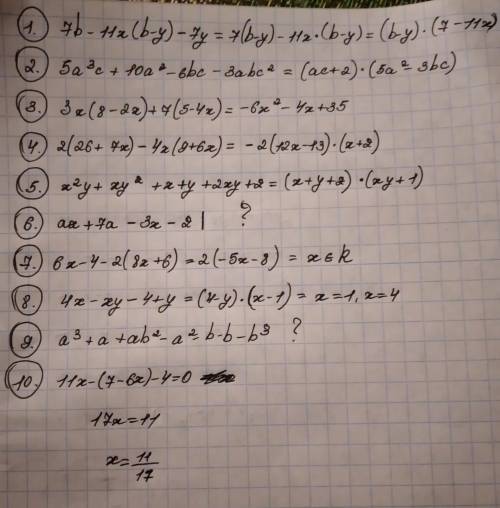 1. 7b - 11x(b-y) - 7y = 7(b-y) - 11x·(b-y) = (b-y)·(7-11x)
2. 5a³c + 10a² - 6bc - 3abc² = (ac+2)·(5a² - 3bc)
3. 3x(8-2x)+7(5-4x) = -6x² - 4x+35
4. 2(26+7x) - 4x(9+6x) = -2(12x-13)·(x+2)
5. x²y + xy² + x+y + 2xy+2 = (x+y+2)·(xy+1)
6. ax + 7a - 3x - 21 ?
7. 6x - 4 - 2(8x+6) = 2(-5x-8) = x∈k
8. 4x - xy - 4+y = (4-y)·(x-1) = x=1, x=4
9. a³ + a + ab² - a² = b-b-b³ ?
10. 11x-(7-6x)-4=0
17x=11
x=11/17